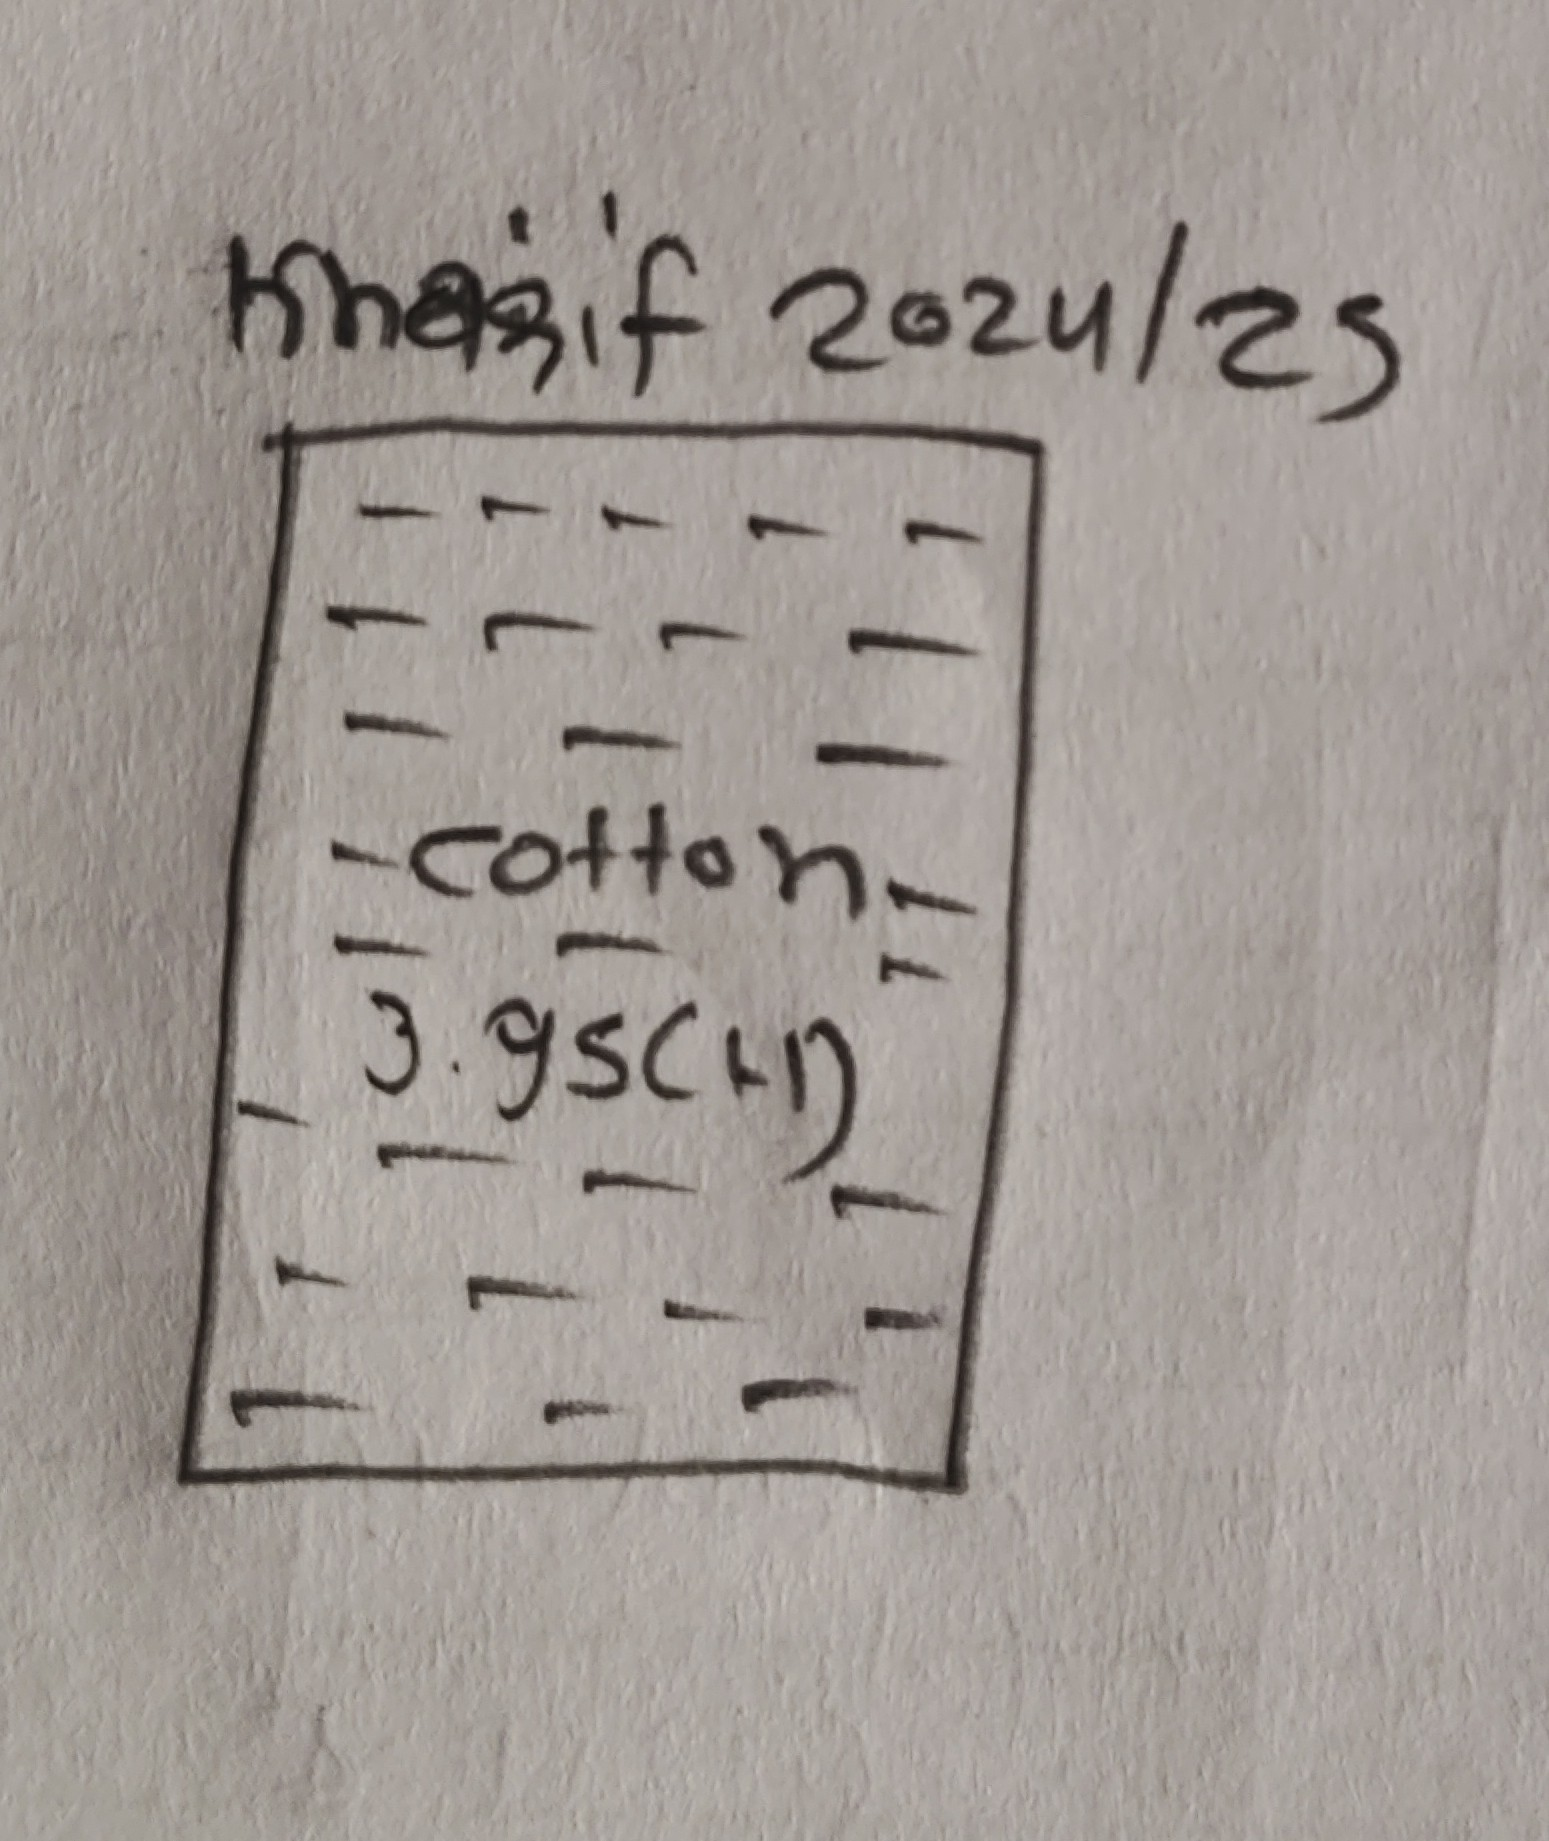 Kharif 2024/25
cotton
3.95(H)